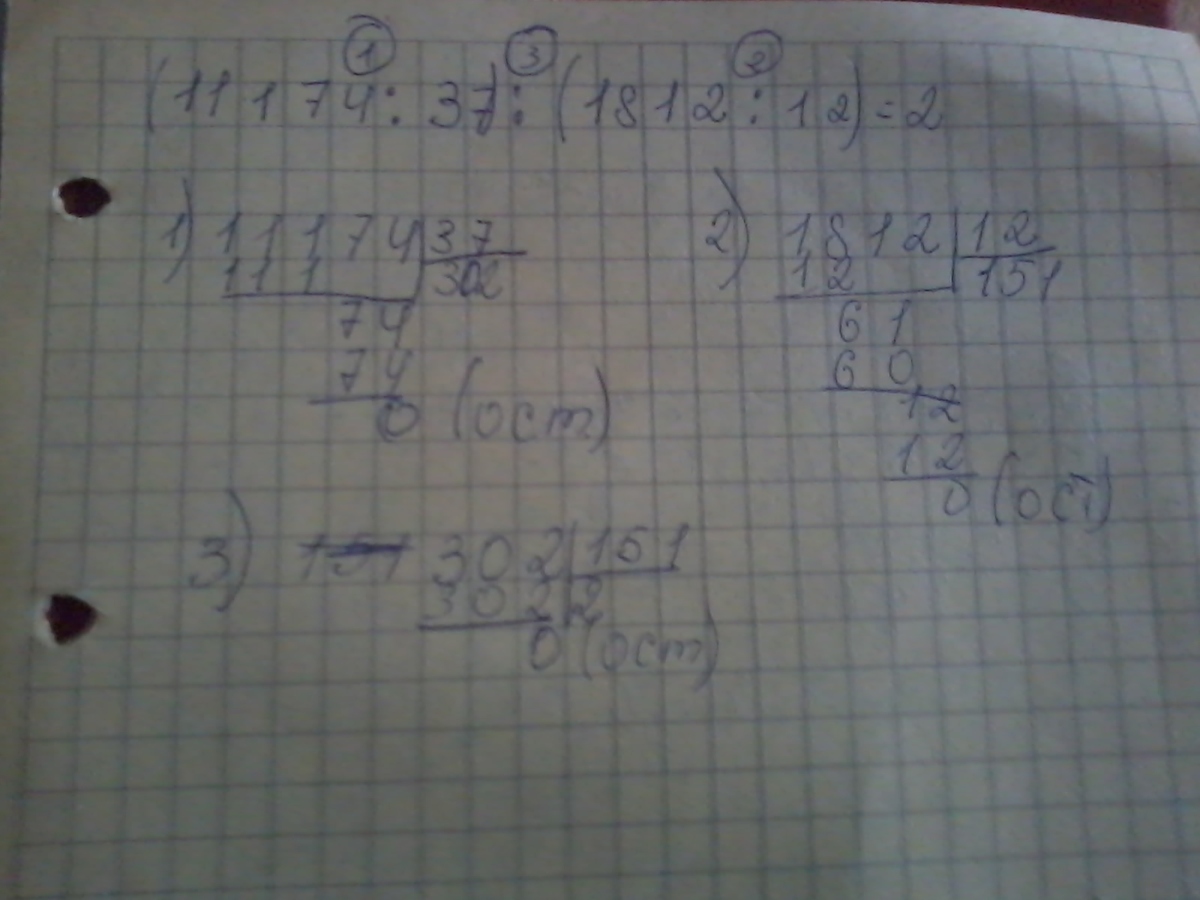 ① ③ ②
(11174 : 37) : (1812 : 12) = 2
1) 11174 | 37
111 | 302
74
74
0 (ост)
2) 1812 | 12
12 | 151
61
60
12
12
0 (ост)
3) 302 | 151
302 | 2
0 (ост)